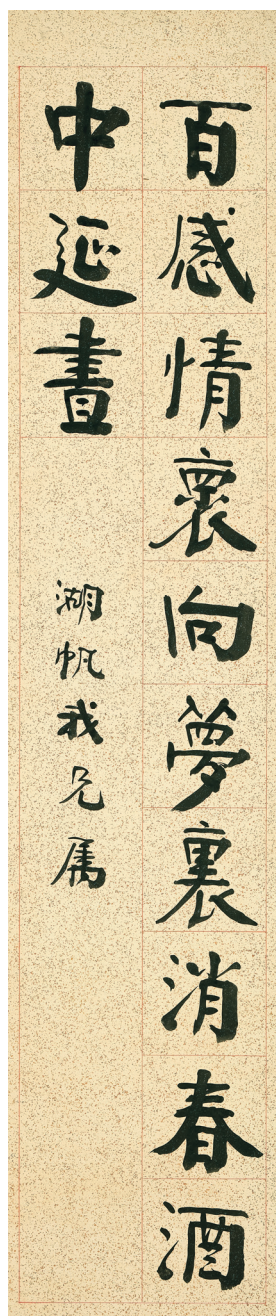 百感情裏向夢裏消春酒
中延晝
湖帆我兄属